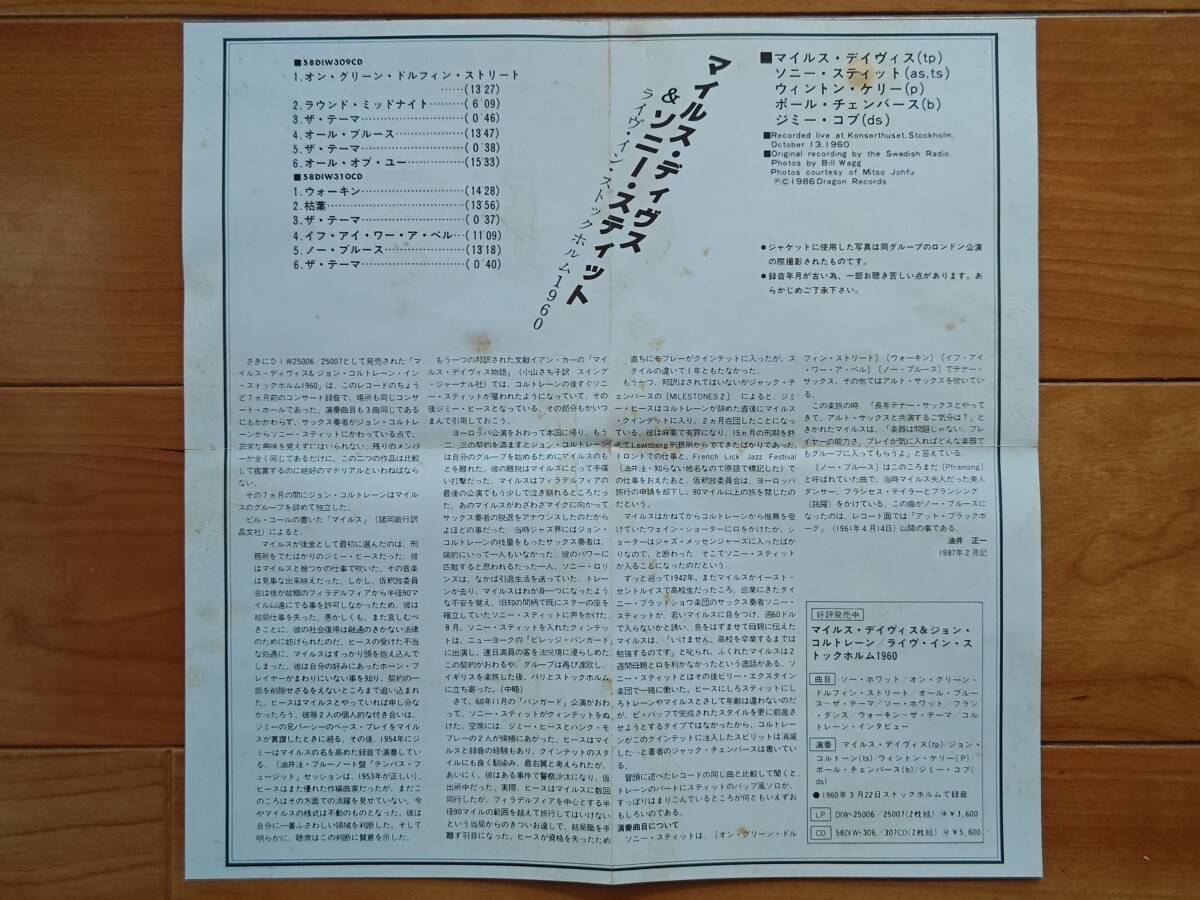 ■58DIW309CD
1.オン・グリーン・ドルフィン・ストリート
……(13'27)
2.ラウンド・ミッドナイト………(6'09)
3.ザ・テーマ……………………(0'46)
4.オール・ブルース……………(13'47)
5.ザ・テーマ……………………(0'38)
6.オール・オブ・ユー…………(15'33)
■58DIW310CD
1.ウォーキン……………………(14'28)
2.枯葉……………………………(13'56)
3.ザ・テーマ……………………(0'37)
4.イフ・アイ・ワー・ア・ベル…(11'09)
5.ノー・ブルース………………(13'18)
6.ザ・テーマ……………………(0'40)
マイルス・デイヴス
&ソニー・スティット
ライヴ・イン・ストックホルム1960
■マイルス・デイヴィス(tp)
ソニー・スティット(as,ts)
ウィントン・ケリー(p)
ポール・チェンバース(b)
ジミー・コブ(ds)
■Recorded live at Konserthuset, Stockholm,
October 13,1960
■Original recording by the Swedish Radio.
Photos by Bill Wagg
Photos courtesy of Mitso Johfu
ⓅⒸ1986 Dragon Records
●ジャケットに使用した写真は同グループのロンドン公演
の際撮影されたものです。
●録音年月が古い為、一部お聴き苦しい点があります。あ
らかじめご了承下さい。
さきにDIW25006/25007として発売された「マ
イルス・デイヴィス&ジョン・コルトレーン・イン
・ストックホルム1960」は、このレコードのちょう
ど7ヵ月前のコンサート録音で、場所も同じコンサ
ート・ホールであった。演奏曲目も3曲同じである
にもかかわらず、サックス奏者がジョン・コルトレ
ーンからソニー・スティットにかわっている点で、
非常な興味を覚えずにはいられない。残りのメンバ
ーが全く同じであるだけに、この二つの作品は比較
して鑑賞するのに絶好のマテリアルといわねばなら
ない。
その7ヵ月の間にジョン・コルトレーンはマイル
スのグループを辞めて独立した。
ビル・コールの書いた「マイルス」(諸岡敏行訳
晶文社)によると、
マイルスが後釜として最初に選んだのは、刑
務所をでたばかりのジミー・ヒースだった。彼
はマイルスと幾つかの仕事で吹いた。その音楽
は見事な出来映えだった。しかし、仮釈放委員
会は彼が故郷のフィラデルフィアから半径90マ
イル以遠にでる事を許可しなかったため、彼は
結局仕事を失った。愚かしくも、また哀しむべ
きことに、彼の社会復帰は融通のきかない法律
のために妨げられたのだ。ヒースの受けた不当
な処遇に、マイルスはすっかり頭を抱え込んで
しまった。彼は自分の好みにあったホーン・プ
レイヤーがまわりにいない事を知り、契約の一
部を削除せざるをえないところまで追い込まれ
た。ヒースはマイルスとやっていれば申し分な
かったろう。彼等2人の個人的な付き合いは、
ジミーの兄パーシーのベース・プレイをマイルス
が賞讃したときに遡る。その後、1954年にジ
ミーはマイルスの名を高めた録音で演奏してい
る。(油井注・ブルーノート盤「テンパス・フ
ュージット」セッションは、1953年が正しい)。
ヒースはまた優れた作編曲家だったが、まだこ
のころはその方面での活躍を見せていない。今
やマイルスの様式は不動のものとなった。彼は
自分に一番ふさわしい領域を判断した。そして
明らかに、聴衆はこの判断に賛意を示した。
もう一つの邦訳された文献イアン・カーの「マイ
ルス・デイヴィス物語」(小山さち子訳 スイング
・ジャーナル社)では、コルトレーンの後すぐソニ
ー・スティットが雇われたようになっていて、その
後ジミー・ヒースとなっている。その部分もかいつ
まんで引用しておこう。
ヨーロッパ公演をおわって本国に帰り、もう
二、三の契約を済ますとジョン・コルトレーン
は自分のグループを始めるためにマイルスのも
とを離れた。彼の離脱はマイルスにとって手痛
い打撃だった。マイルスはフィラデルフィアの
最後の公演でもう少しで泣き崩れるところだっ
た。あのマイルスがわざわざマイクに向かって
サックス奏者の脱退をアナウンスしたのだから
よほどの事だった。当時ジャズ界にはジョン・
コルトレーンの技量をもったサックス奏者は、
端的にいって一人もいなかった。彼のパワーに
匹敵すると思われるたった一人、ソニー・ロリ
ンズは、なかば引退生活を送っていた。トレー
ンが去り、マイルスはわが身一つになったよう
な不安を覚え、旧知の間柄で既にスターの座を
確立していたソニー・スティットに声をかけた。
8月、ソニー・スティットを入れたクィンテッ
トは、ニューヨークの「ビレッジ・バンガード」
に出演し、連日満員の客を法悦境に浸らしめた。
この契約がおわるや、グループは再び渡欧し、
イギリスを楽旅した後、パリとストックホルム
に立ち寄った。(中略)
さて、60年11月の「バンガード」公演がおわ
って、ソニー・スティットがクィンテットをぬ
けた。空席には、ジミー・ヒースとハンク・モ
ブレーの2人が候補にあがった。ヒースはマイ
ルスと録音の経験もあり、クインテットのスタ
イルにも良く馴染み、最右翼と考えられたが、
あいにく、彼はある事件で警察沙汰になり、仮
出所中だった。実際、ヒースはマイルスに数回
同行したが、フィラデルフィアを中心とする半
径90マイルの範囲を越えて旅行してはいけない
という当局からのきついお達しで、結局職を手
離す羽目になった。ヒースが資格を失ったため
直ちにモブレーがクインテットに入ったが、ス
タイルの違いで1年ともたなかった。
もう一つ、邦訳はされてはいないがジャック・チ
ェンバースの[MILESTONES 2] によると、ジミ
ー・ヒースはコルトレーンが辞めた直後にマイルス
・クインテットに入り、2ヵ月在団したことになっ
ている。彼は麻薬で有罪になり、15ヵ月の刑期を終
えてLewisberg刑務所からでてきたばかりであった。
トロントでの仕事と、French Lick Jazz Festival
(油井注・知らない地名なので原語で標記した)で
の仕事をおえたあと、仮釈放委員会は、ヨーロッパ
旅行の申請を却下し、90マイル以上の旅を禁じたの
だという。
マイルスはかねてからコルトレーンから推薦を受
けていたウェイン・ショーターに口をかけたが、シ
ョーターはジャズ・メッセンジャーズに入ったばか
りなので、と断わった。そこでソニー・スティット
が入ることになったのだという。
ずっと遡って1942年、まだマイルスがイースト・
セントルイスで高校生だったころ、巡業にきたタイ
ニー・ブラッドショウ楽団のサックス奏者ソニー・
スティットが、若いマイルスに目をつけ、週60ドル
で入らないかと誘い、息をはずませて母親に伝えた
マイルスは、「いけません、高校を卒業するまでは
勉強するのです」と叱られ、ふくれたマイルスは2
週間母親と口を利かなかったという逸話がある。ソ
ニー・スティットとはその後ビリー・エクスタイン
楽団で一緒に働いた。ヒースにしろスティットにし
ろトレーンやマイルスとさして年齢は違わないのだ
が、ビ・バップで完成されたスタイルを更に前進さ
せようとするタイプではなかったから、コルトレー
ンがこのクインテットに注入したスピリットは消滅
した…と著者のジャック・チェンバースは書いてい
る。
冒頭に述べたレコードの同じ曲と比較して聞くと、
トレーンのパートにスティットのバップ風ソロが、
すっぽりはまりこんでいるところが何ともいえずお
もしろいのである。
演奏曲目について
ソニー・スティットは、[オン・グリーン・ドル
フィン・ストリート] [ウォーキン] [イフ・アイ
・ワー・ア・ベル] [ノー・ブルース]でテナー・
サックス、その他ではアルト・サックスを吹いてい
る。
この楽旅の時、「長年テナー・サックスとやって
きて、アルト・サックスと共演するご気分は?」と
きかれたマイルスは、「楽器は問題じゃない。プレ
イヤーの能力さ。プレイが気に入ればどんな楽器で
もグループに入ってもらうよ」と答えている。
[ノー・ブルース]はこのころまだ[Pfrancing]
と呼ばれていた曲で、当時マイルス夫人だった美人
ダンサー、フランセス・テイラーとプランシング
(跳躍)をかけている。この曲がノー・ブルースに
なったのは、レコード面では「アット・ブラックホ
ーク」(1961年4月14日)以降の事である。
油井 正一
1987年2月記
好評発売中
マイルス・デイヴィス&ジョン・
コルトレーン/ライヴ・イン・ス
トックホルム1960
曲目 ソー・ホワット/オン・グリーン・
ドルフィン・ストリート/オール・ブルー
ス〜ザ・テーマ/ソー・ホワット/フラン
・ダンス/ウォーキン〜ザ・テーマ/コル
トレーン・インタビュー
演奏 マイルス・デイヴィス(tp)ジョン・
コルトーン(ts)ウィントン・ケリー(P)
ポール・チェンバース(b)ジミー・コブ(
ds)
●1960年3月22日ストックホルムで録音
LP DIW-25006/25007(2枚組)¥3,600
CD 58DIW-306/307CD(2枚組)¥5,800